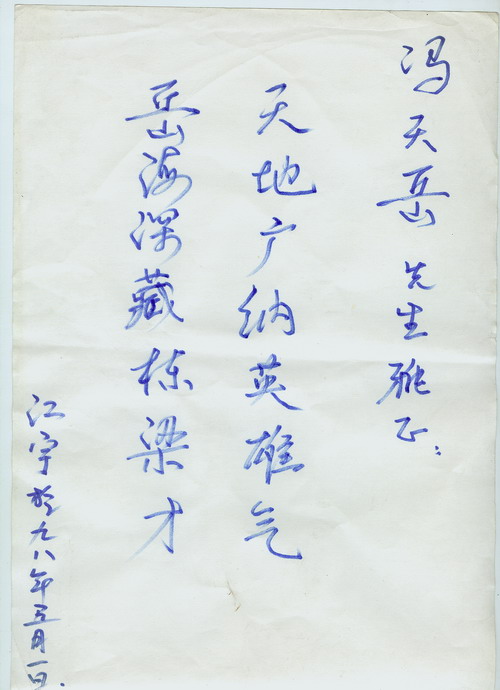 冯天岳先生雅正：
天地广纳英雄气
岳海深藏栋梁才
江宇於九八年五月一日.